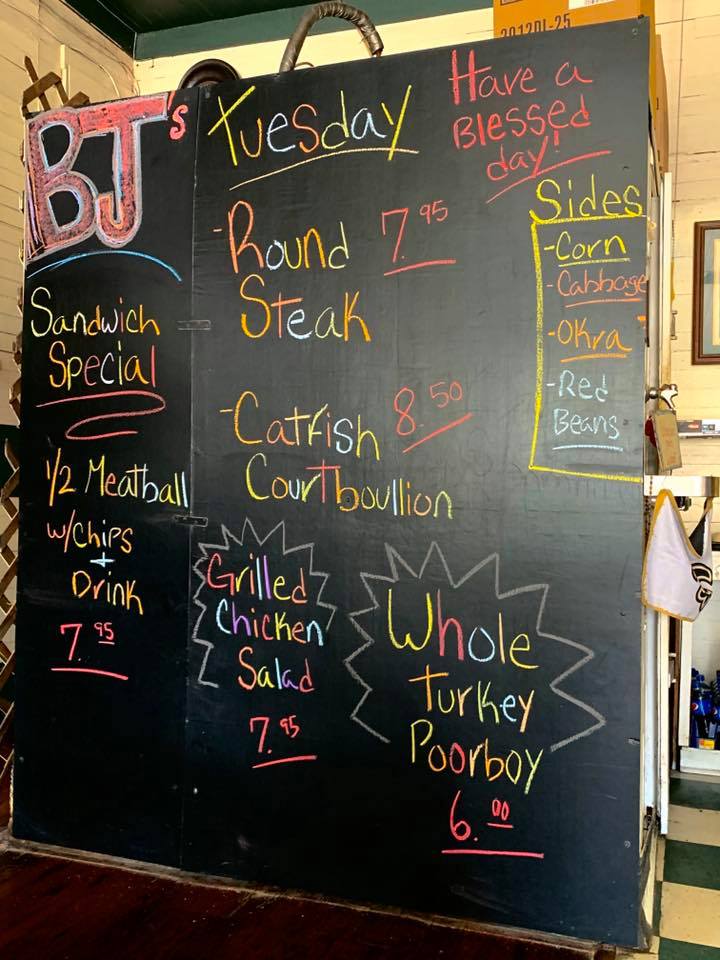 2012DL-25
BJ's
Tuesday
Have a
Blessed
day!
Sandwich
Special
1/2 Meatball
w/Chips
+
Drink
7.95
-Round 7.95
Steak
-Catfish 8.50
Courtboullion
Sides
-Corn
-Cabbage
-Okra
-Red
Beans
Grilled
Chicken
Salad
7.95
Whole
Turkey
Poorboy
6.00